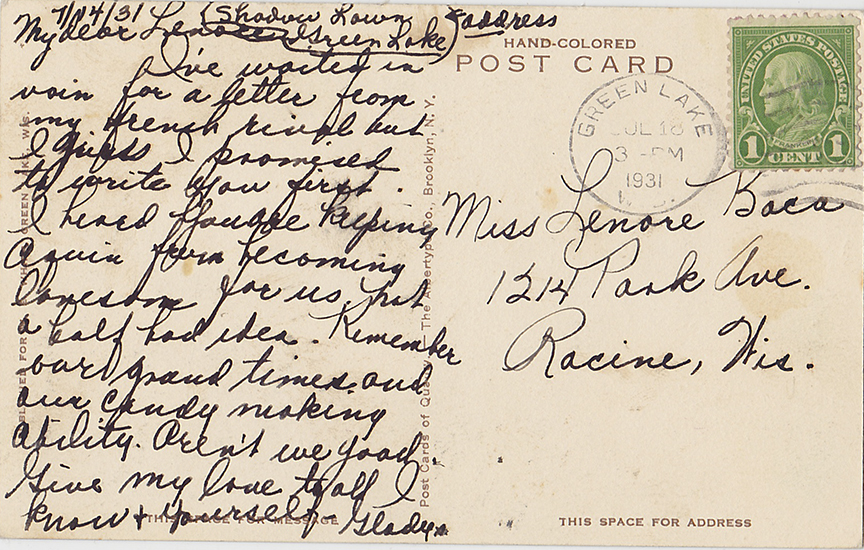 7/14/31 (Shadow Lawn
Green Lake) address
My dear Lenore
I've waited in
vain for a letter from
my french rival but
I guess I promised
to write you first.
I heard you are keeping
from becoming
lonesome for us. Not
a half bad idea. Remember
our grand times and
our candy making
ability. Aren't we good.
Give my love to all I
know + yourself - Gladys
HAND-COLORED
POST CARD
GREEN LAKE
JUL 16
3 - PM
1931
WIS.
UNITED STATES POSTAGE
FRANKLIN
1 CENT 1
Miss Lenore Baca
1214 Park Ave.
Racine, Wis.
Post Cards of Quality. — The Albertype Co., Brooklyn, N.Y.
GREEN LAKE, WIS.
THIS SPACE FOR MESSAGE
THIS SPACE FOR ADDRESS